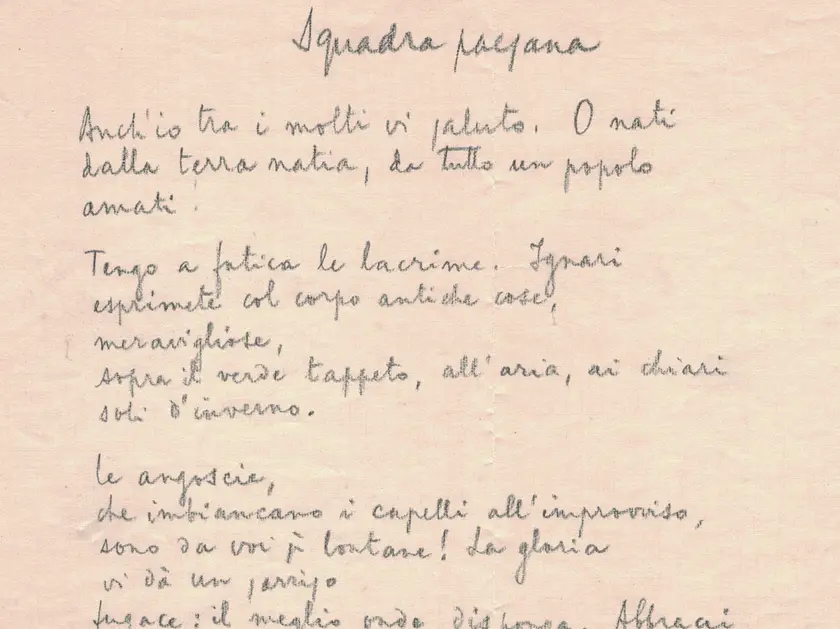 Squadra paesana
Anch'io tra i molti vi saluto. O nati
dalla terra natia, da tutto un popolo
amati.
Tengo a fatica le lacrime. Ignari
esprimete col corpo antiche cose,
meravigliose,
sopra il verde tappeto, all'aria, ai chiari
soli d'inverno.
le angoscie,
che imbiancano i capelli all'improvviso,
sono da voi sì lontane! La gloria
vi dà un sorriso
fugace: il meglio onde disponga. Abbracci